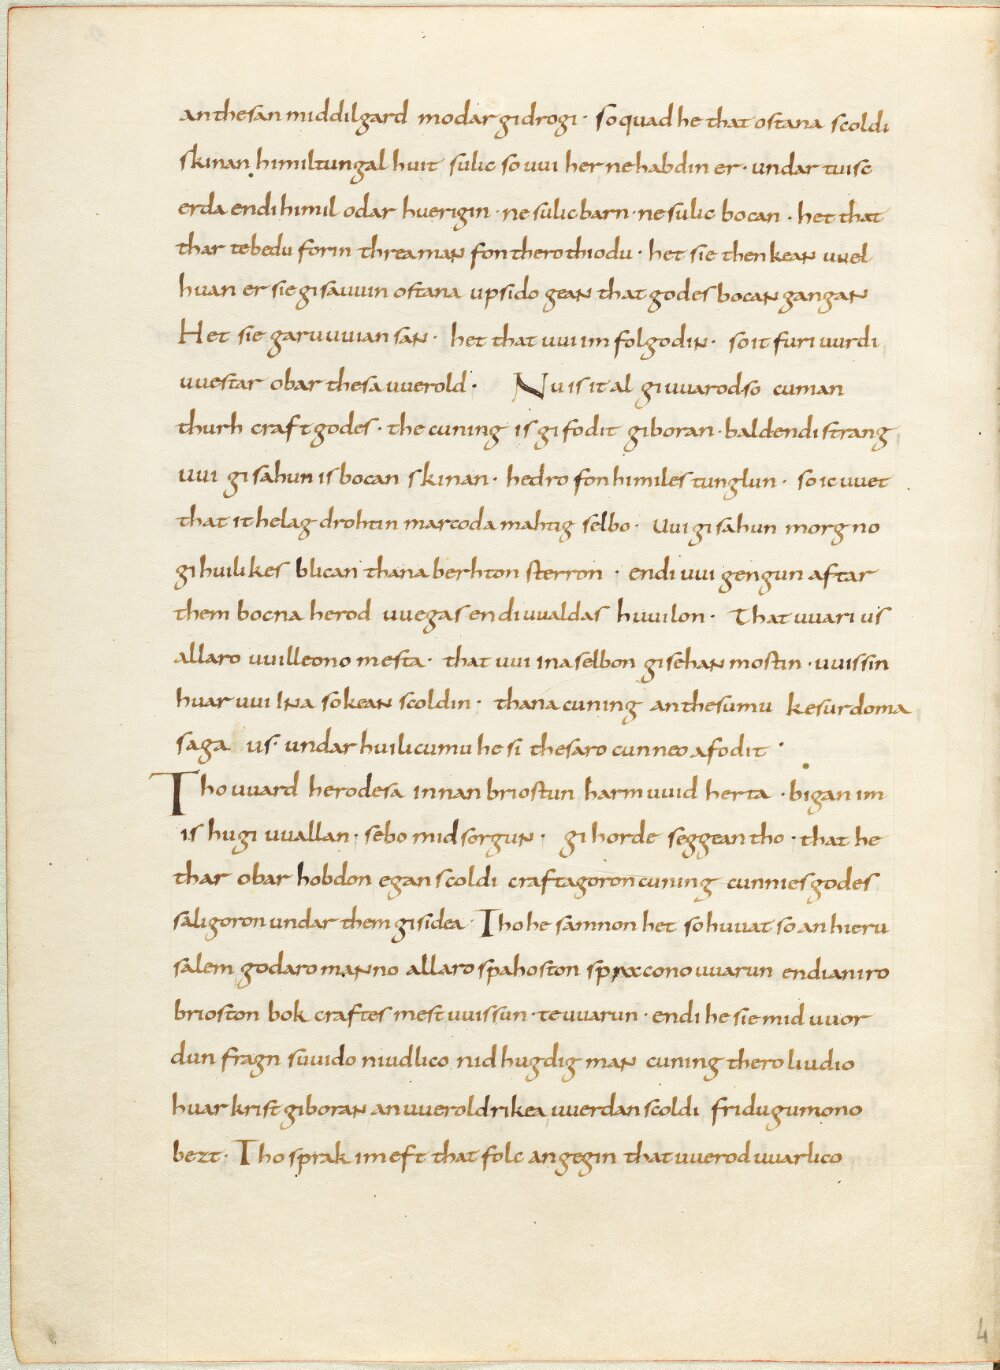 anthesan middilgard modar gidrogi · so quad he that ostana scoldi
skinan himiltungal huit sulic so uui her ne habdin er · undar tuisc
erda endi himil odar huerigin · ne sulic barn · ne sulic bocan · het that
thar te bedu forin threa man fon thero thiodu · het sie thenkean uuel
huan er sie gisauuin ostana upsidogean that godes bocan gangan
Het sie garuuuian san · het that uui im folgodin · so it furi uurdi
uuestar obar thesa uuerold · Nu is it al giuuarod so cuman
thurh craft godes · the cuning is gifodit giboran · bald endi strang
uui gisahun is bocan skinan · hedro fon himiles tunglun · so ic uuet
that it helag drohtin marcoda mahtig selbo · Uui gisahun morgno
gihuilikes blican thana berhton sterron · endi uui gengun aftar
them bocna herod uuegas endi uualdas huuilon · That uuari us
allaro uuilleono mesta · that uui ina selbon gisehan mostin · uuissin
huar uui ina sokean scoldin · thana cuning an thesumu kesurdoma
saga us · undar huilicumu he si thesaro cunneo afodit ·
Tho uuard herodesa innan briostun harm uuid herta · bigan im
is hugi uuallan · sebo mid sorgun · gihorde seggean tho · that he
thar obar hobdon egan scoldi craftagoron cuning cunnies godes
saligoron undar them gisidea · Tho he samnon het so huuat so an hieru
salem godaro manno allaro spahoston spracono uuarun endi an iro
brioston bok craftes mest uuissun · te uuarun · endi he sie mid uuor
dun fragn suuido niudlico nid hugdig man cuning thero liudio
huar krist giboran an uueroldrikea uuerdan scoldi fridugumono
bezt · Tho sprak im eft that folc angegin that uuerod uuarlico
4